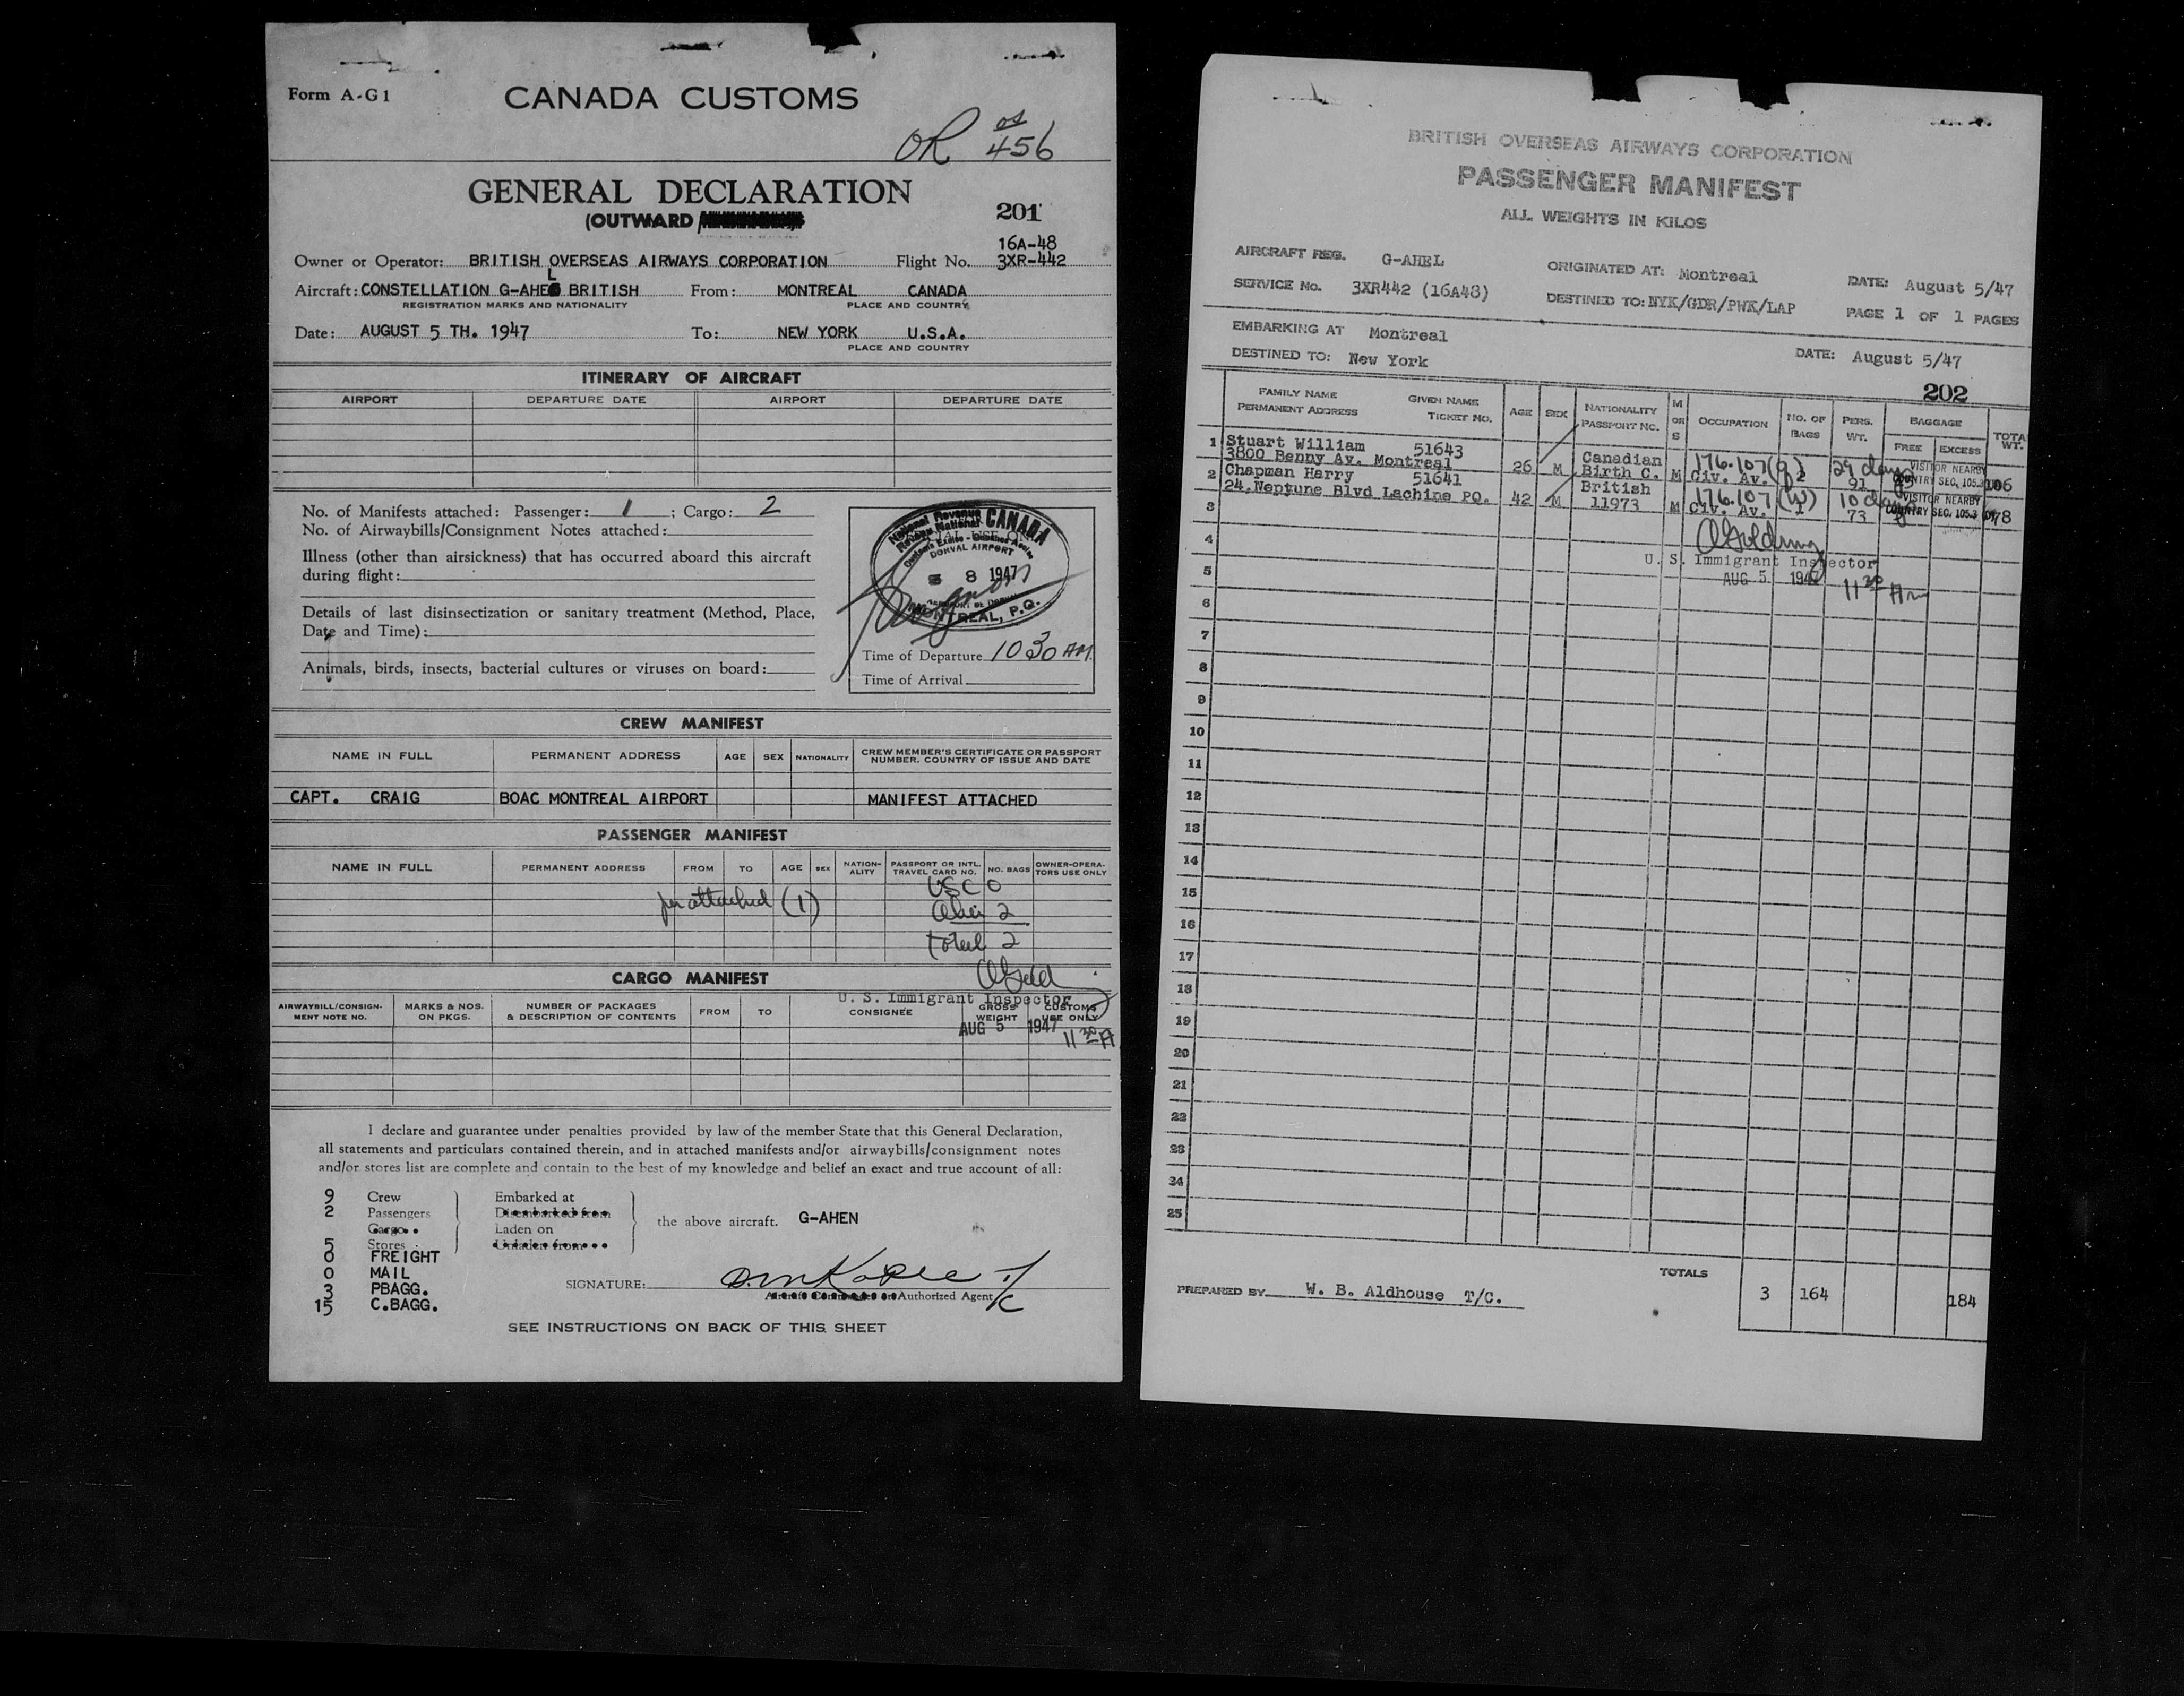 Form A-G1
CANADA CUSTOMS
OR os 456
GENERAL DECLARATION
(OUTWARD
201
16A-48
Owner or Operator: BRITISH OVERSEAS AIRWAYS CORPORATION Flight No. 3XR-442
L
Aircraft: CONSTELLATION G-AHE BRITISH From: MONTREAL CANADA
REGISTRATION MARKS AND NATIONALITY PLACE AND COUNTRY
Date: AUGUST 5 TH. 1947 To: NEW YORK U.S.A.
PLACE AND COUNTRY
ITINERARY OF AIRCRAFT
AIRPORT DEPARTURE DATE AIRPORT DEPARTURE DATE
No. of Manifests attached: Passenger: 1 ; Cargo: 2
No. of Airwaybills/Consignment Notes attached:
Illness (other than airsickness) that has occurred aboard this aircraft
during flight:
Details of last disinsectization or sanitary treatment (Method, Place,
Date and Time):
Animals, birds, insects, bacterial cultures or viruses on board:
National Revenue
Revenu National
CANADA
DORVAL AIRPORT
8 1947
MONTREAL, P.Q.
Time of Departure 10 30 AM.
Time of Arrival
CREW MANIFEST
NAME IN FULL PERMANENT ADDRESS AGE SEX NATIONALITY CREW MEMBER'S CERTIFICATE OR PASSPORT NUMBER, COUNTRY OF ISSUE AND DATE
CAPT. CRAIG BOAC MONTREAL AIRPORT MANIFEST ATTACHED
PASSENGER MANIFEST
NAME IN FULL PERMANENT ADDRESS FROM TO AGE SEX NATION-ALITY PASSPORT OR INTL. TRAVEL CARD NO. NO. BAGS OWNER-OPERA-TORS USE ONLY
USC 0
per attached (1) Alien 2
total 2
CARGO MANIFEST
U. S. Immigrant Inspector
AIRWAYBILL/CONSIGN-MENT NOTE NO. MARKS & NOS. ON PKGS. NUMBER OF PACKAGES & DESCRIPTION OF CONTENTS FROM TO CONSIGNEE GROSS WEIGHT CUSTOMS USE ONLY
AUG 5 1947 11 30 A
I declare and guarantee under penalties provided by law of the member State that this General Declaration,
all statements and particulars contained therein, and in attached manifests and/or airwaybills/consignment notes
and/or stores list are complete and contain to the best of my knowledge and belief an exact and true account of all:
9 Crew Embarked at
2 Passengers Disembarked from
Cargo Laden on the above aircraft. G-AHEN
5 Stores Unladen from
0 FREIGHT
0 MAIL
3 PBAGG.
15 C.BAGG.
SIGNATURE: T/C
Authorized Agent
SEE INSTRUCTIONS ON BACK OF THIS SHEET
BRITISH OVERSEAS AIRWAYS CORPORATION
PASSENGER MANIFEST
ALL WEIGHTS IN KILOS
AIRCRAFT REG. G-AHEL ORIGINATED AT: Montreal DATE: August 5/47
SERVICE No. 3XR442 (16A48) DESTINED TO: NYK/GDR/PWK/LAP PAGE 1 OF 1 PAGES
EMBARKING AT Montreal
DESTINED TO: New York DATE: August 5/47
202
FAMILY NAME GIVEN NAME PERMANENT ADDRESS TICKET NO. AGE SEX NATIONALITY PASSPORT NO. M OR S OCCUPATION NO. OF BAGS PERS. WT. BAGGAGE FREE EXCESS TOTAL WT.
1 Stuart William 51643 Canadian 176.107(g) 29 days VISITOR NEARBY
3800 Benny Av. Montreal 26 M Birth C. M Civ. Av. 2 91 COUNTRY SEC. 105.3 106
2 Chapman Harry 51641 British 176.107 (W) 10 days VISITOR NEARBY
24.Neptune Blvd Lachine PQ. 42 M 11973 M Civ. Av. 1 73 COUNTRY SEC. 105.3 78
3
4
U. S. Immigrant Inspector
5 AUG 5 1947 11 30 Am
6
7
8
9
10
11
12
13
14
15
16
17
18
19
20
21
22
23
34
25
TOTALS 3 164 184
PREPARED BY W. B. Aldhouse T/C.